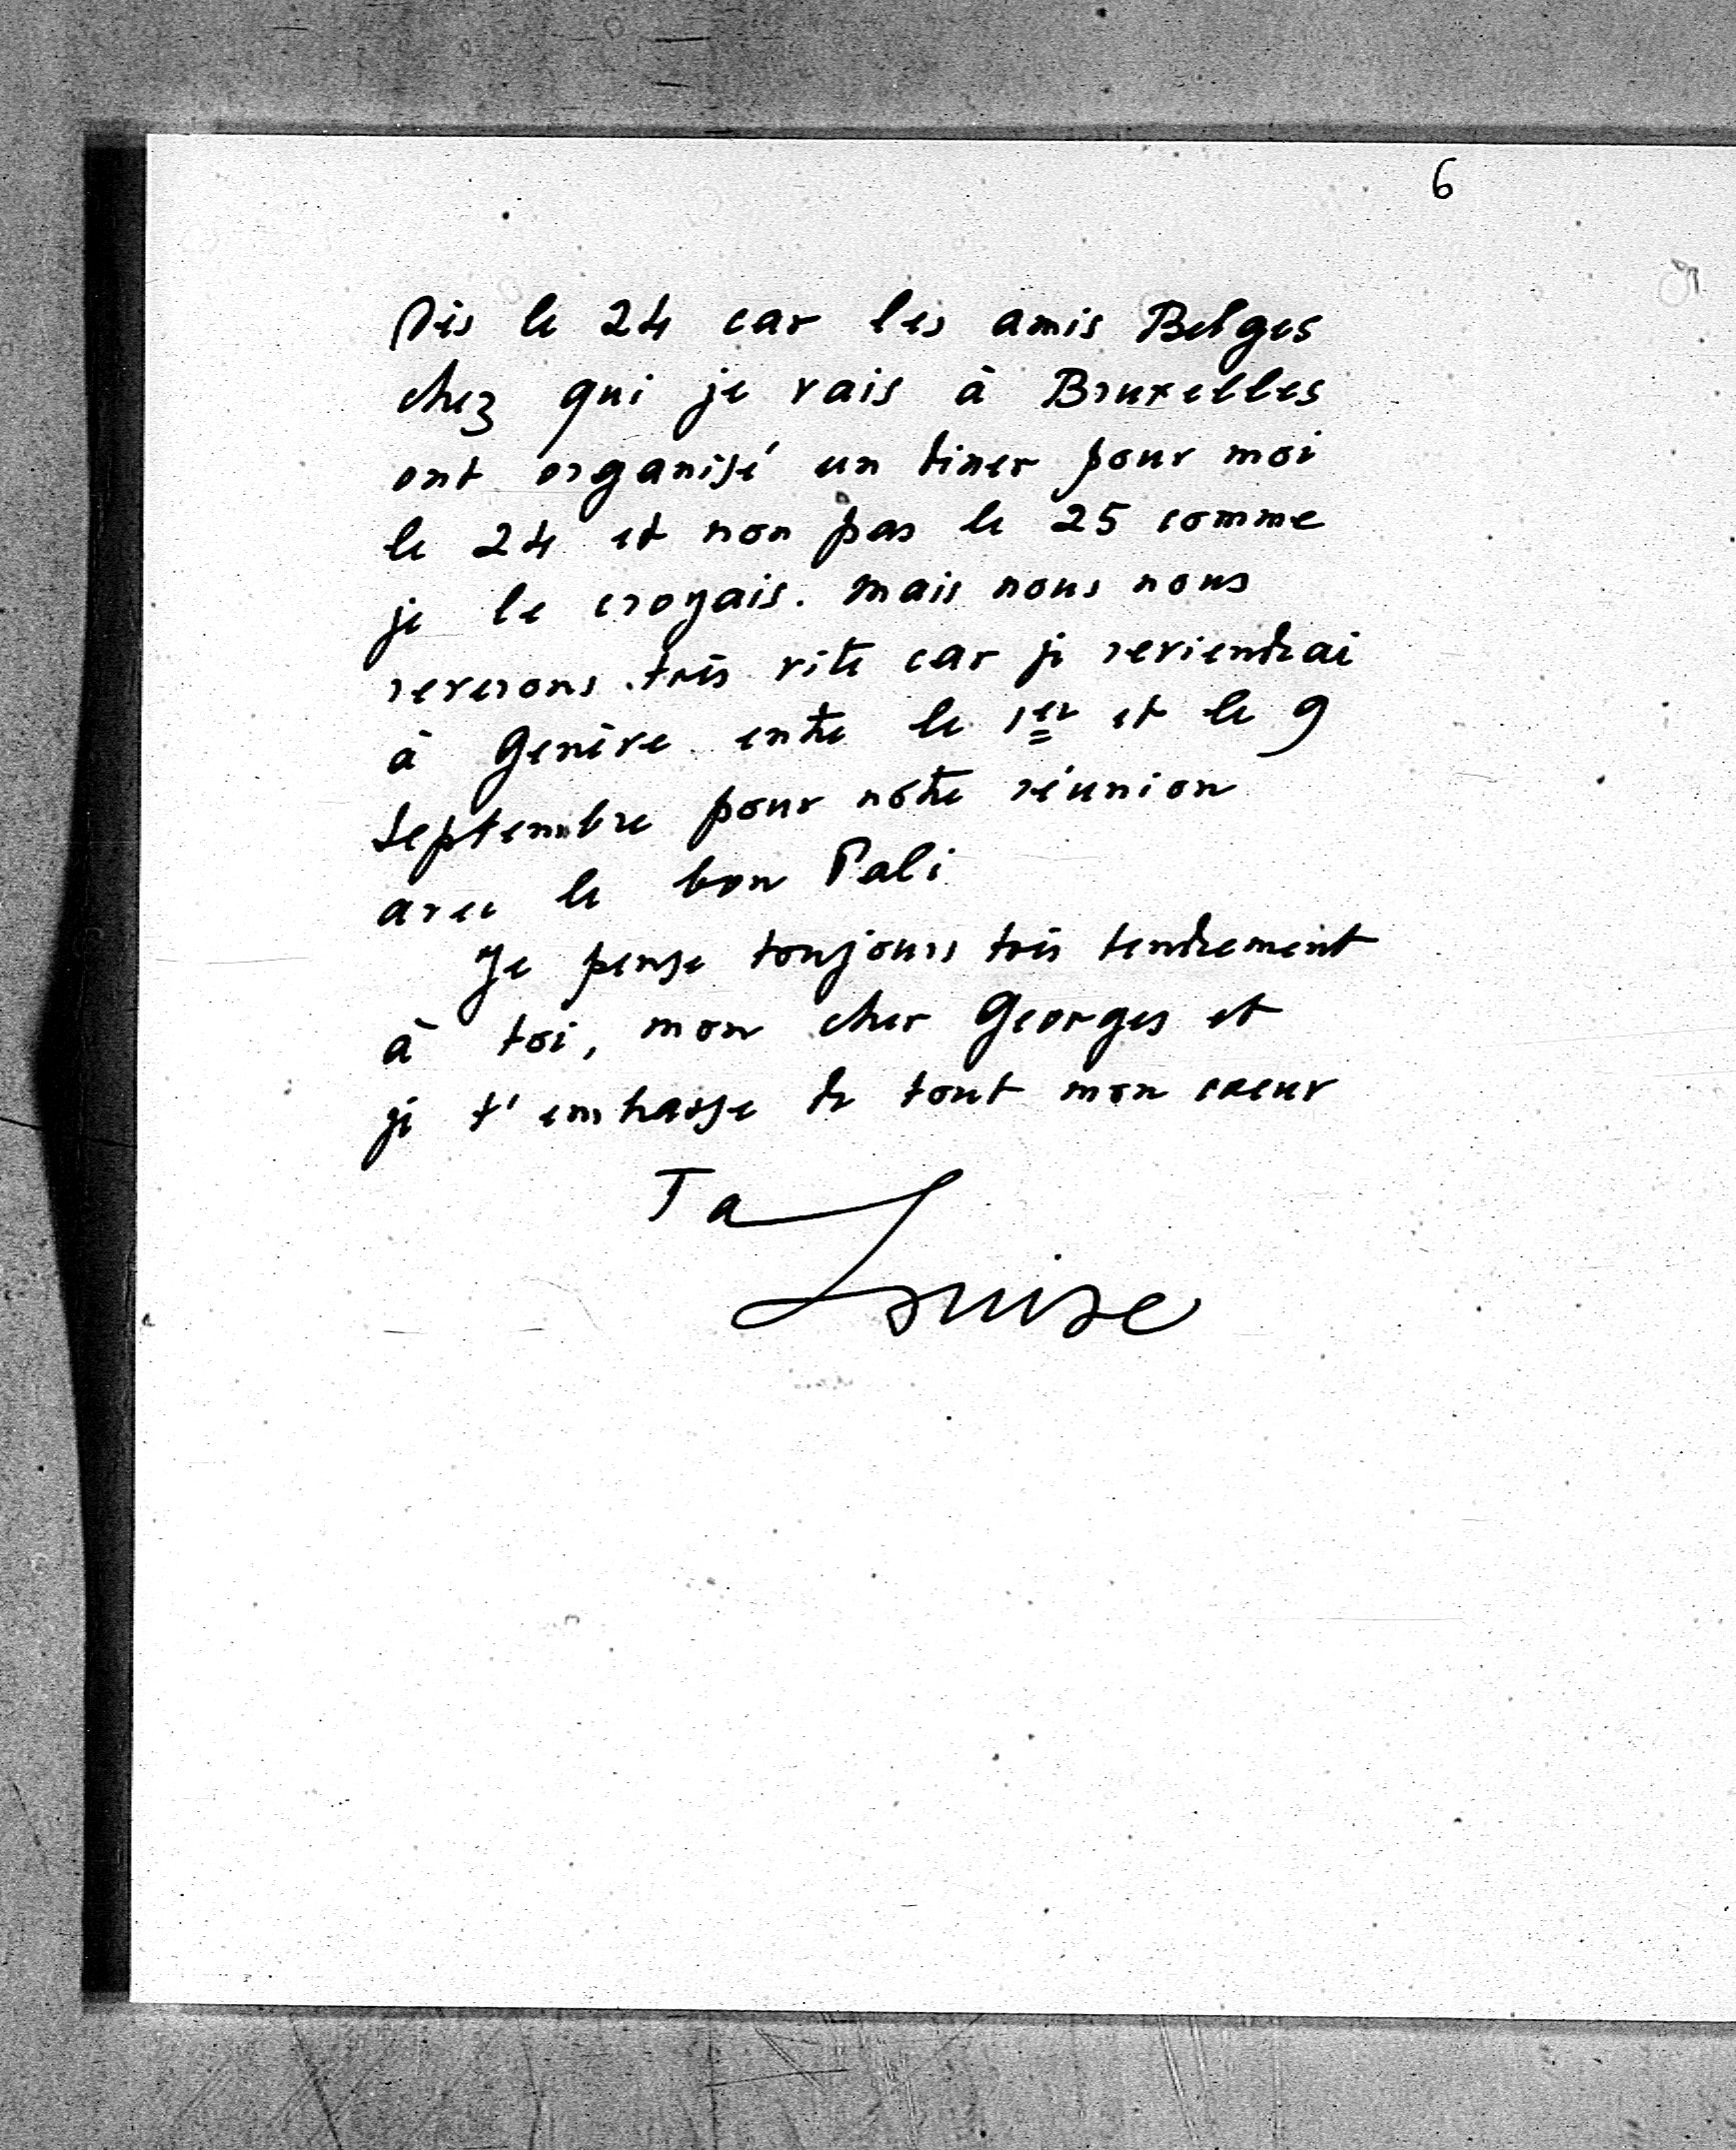 6
Dès le 24 car les amis Belges
chez qui je vais à Bruxelles
ont organisé un diner pour moi
le 24 et non pas le 25 comme
je le croyais. Mais nous nous
reverons très vite car je reviendrai
à Genève entre le 1er et le 9
Septembre pour notre réunion
avec le bon Pali
Je pense toujours très tendrement
à toi, mon cher Georges et
je t'embrasse de tout mon cœur
Ta
Louise